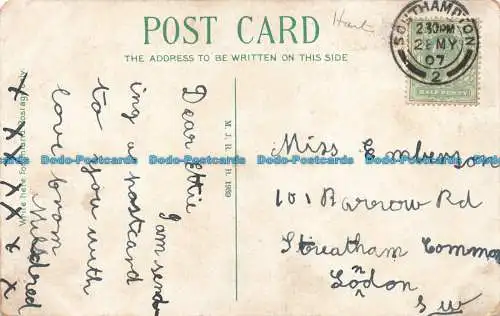 POST CARD
THE ADDRESS TO BE WRITTEN ON THIS SIDE
Hants
SOUTHAMPTON
2.30PM
28 MY
07
2
HALF PENNY
Write here for Inland Postage only.
M. J. R. B.
Dear Ettie
I am send
ing a postcard
to you with
love from
Mildred
x x x x x x x
Miss Emberson
101 Barrow Rd
Streatham Common
Lodon
n
S W
Dodo-Postcards Dodo-Postcards Dodo-Postcards Dodo-Postcards Dodo-Postcards